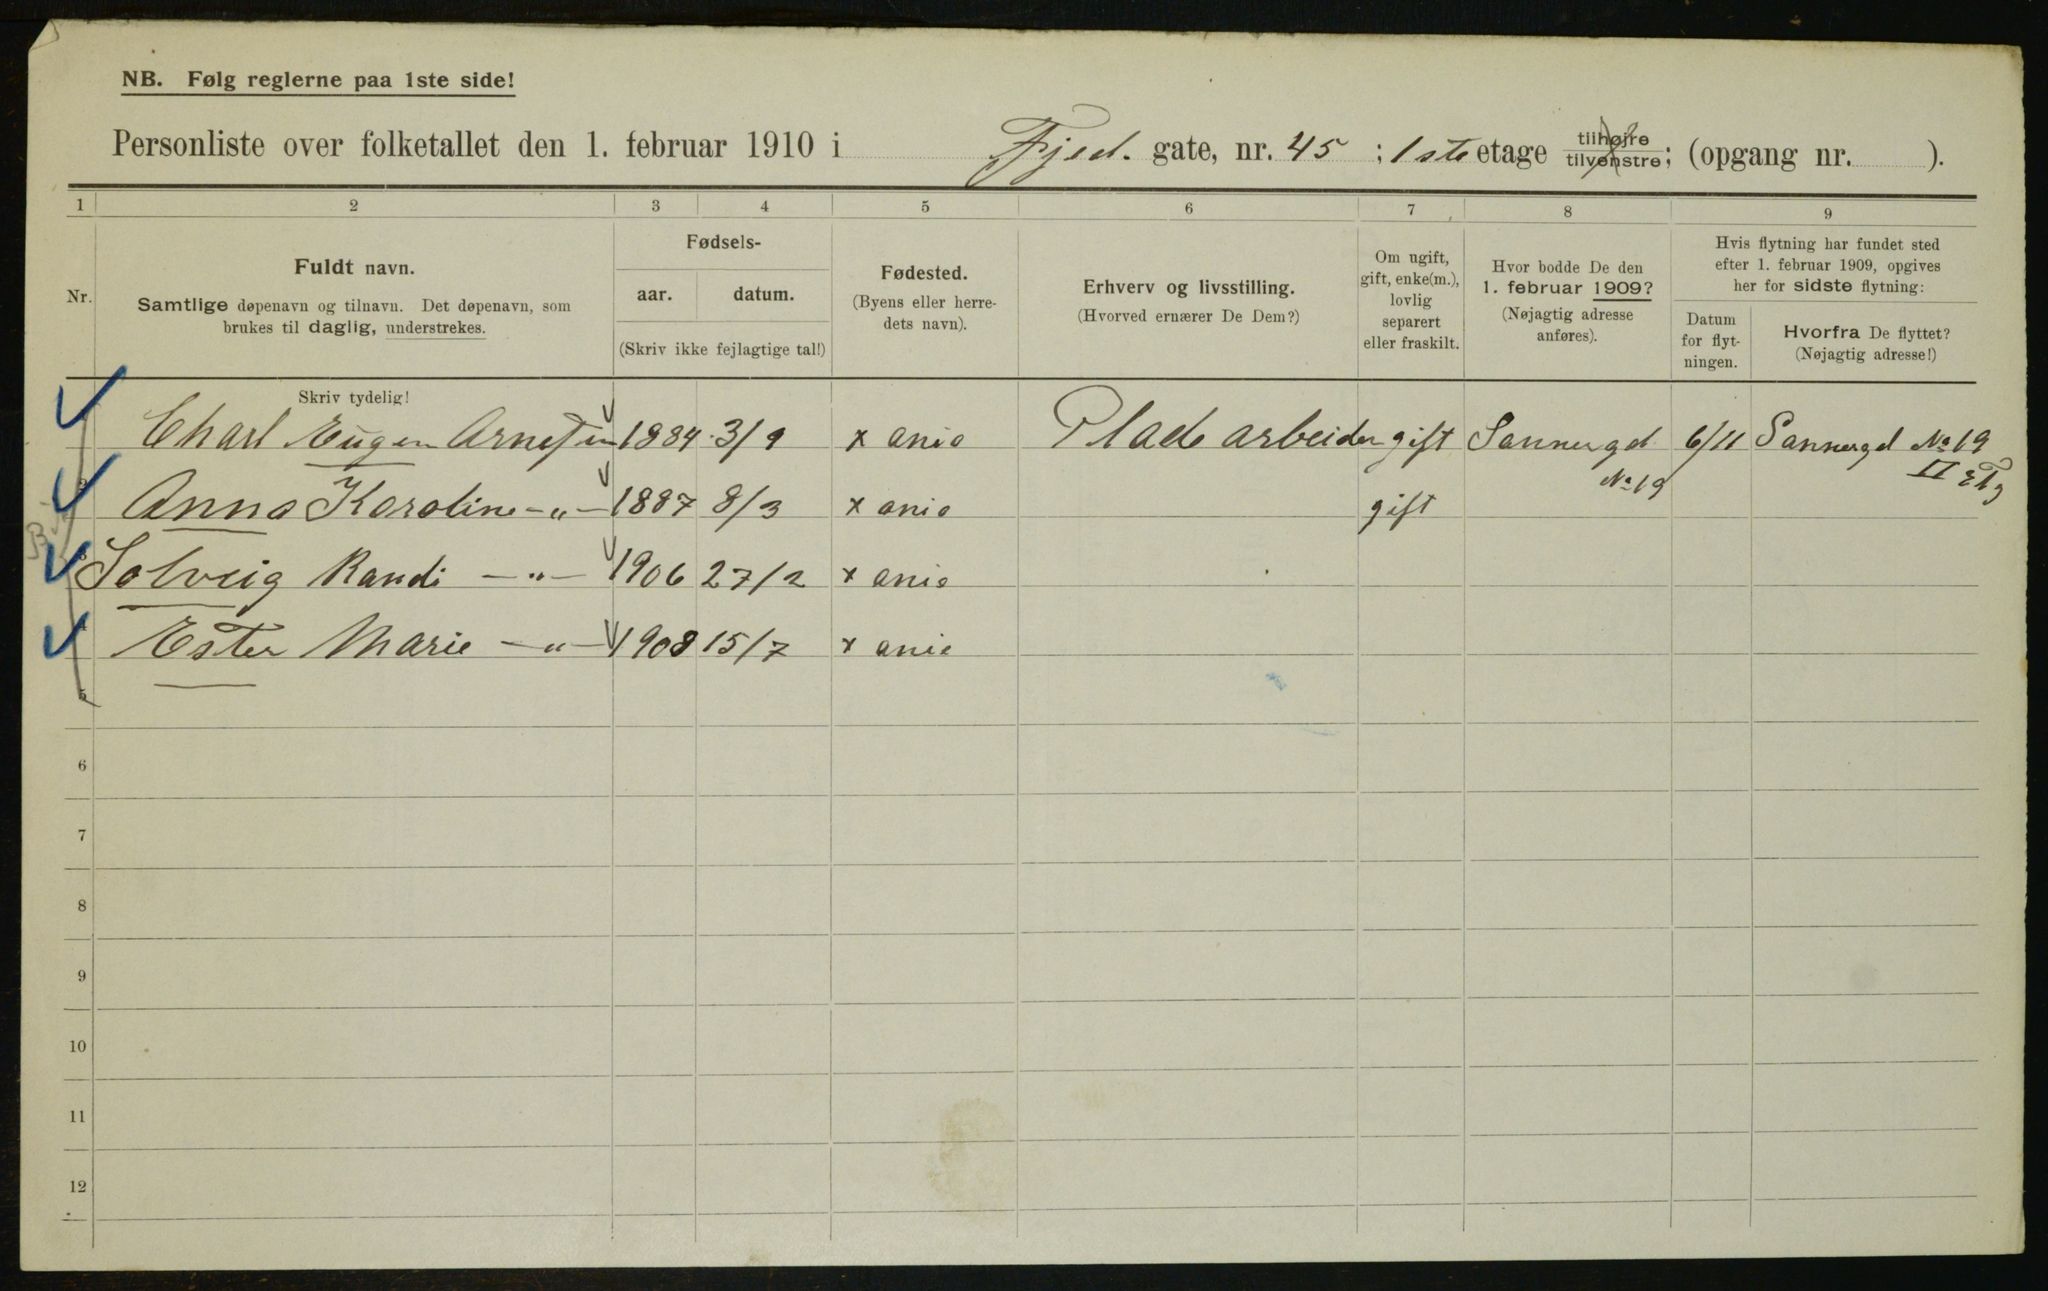 NB. Følg reglerne paa 1ste side!
Personliste over folketallet den 1. februar 1910 i Fjed. gate, nr. 45 ; 1ste etage tilhøjre tilvenstre; (opgang nr. ).
1 2 3 4 5 6 7 8 9
Nr.
Fuldt navn.
Samtlige døpenavn og tilnavn. Det døpenavn, som
brukes til daglig, understrekes.
Fødsels-
aar. datum.
(Skriv ikke fejlagtige tal!)
Fødested.
(Byens eller herre-
dets navn).
Erhverv og livsstilling.
(Hvorved ernærer De Dem?)
Om ugift,
gift, enke(m.),
lovlig
separert
eller fraskilt.
Hvor bodde De den
1. februar 1909?
(Nøjagtig adresse
anføres).
Hvis flytning har fundet sted
efter 1. februar 1909, opgives
her for sidste flytning:
Datum
for flyt-
ningen.
Hvorfra De flyttet?
(Nøjagtig adresse!)
Skriv tydelig!
Charl Eugen 1884 3/9 x ania Plade arbeider gift Sannergd No 19 6/11 Sannergd No 19 II Etg
2 Anna Karoline -"- 1887 8/3 x ania gift
3 Solveig Randi -"- 1906 27/2 x ania
4 Ester Marie -"- 1908 15/7 x ania
5
6
7
8
9
10
11
12